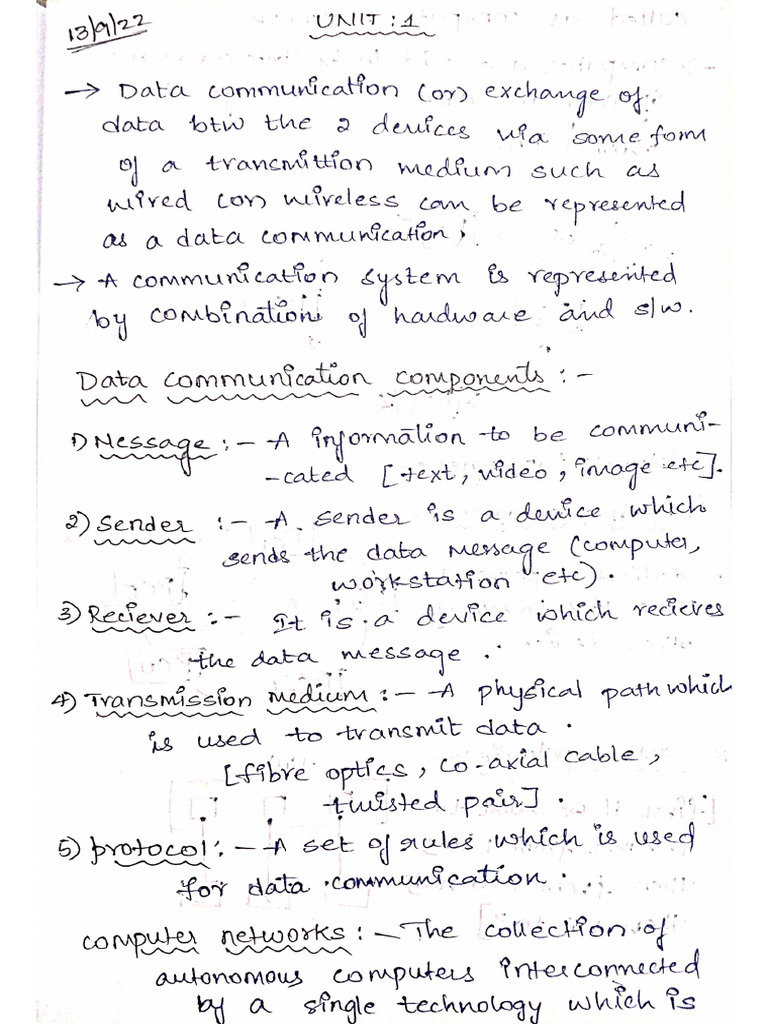 13/9/22
UNIT : 1
→ Data communication (or) exchange of
data btw the 2 devices via some form
of a transmittion medium such as
wired (or) wireless can be represented
as a data communication.
→ A communication system is represented
by combination of hardware and s/w.
Data communication components : -
1) Message : - A information to be communi-
-cated [text, video, image etc].
2) Sender : - A sender is a device which
sends the data message (computer,
workstation etc).
3) Reciever : - It is a device which recieves
the data message .
4) Transmission medium : - A physical path which
is used to transmit data .
[fibre optics, co-axial cable,
twisted pair] .
5) protocol : - A set of rules which is used
for data communication .
computer networks : - The collection of
autonomous computers interconnected
by a single technology which is